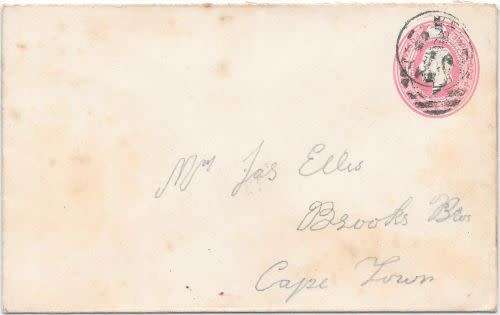 Mrs Jas Ellis
Brooks Bros
Cape Town